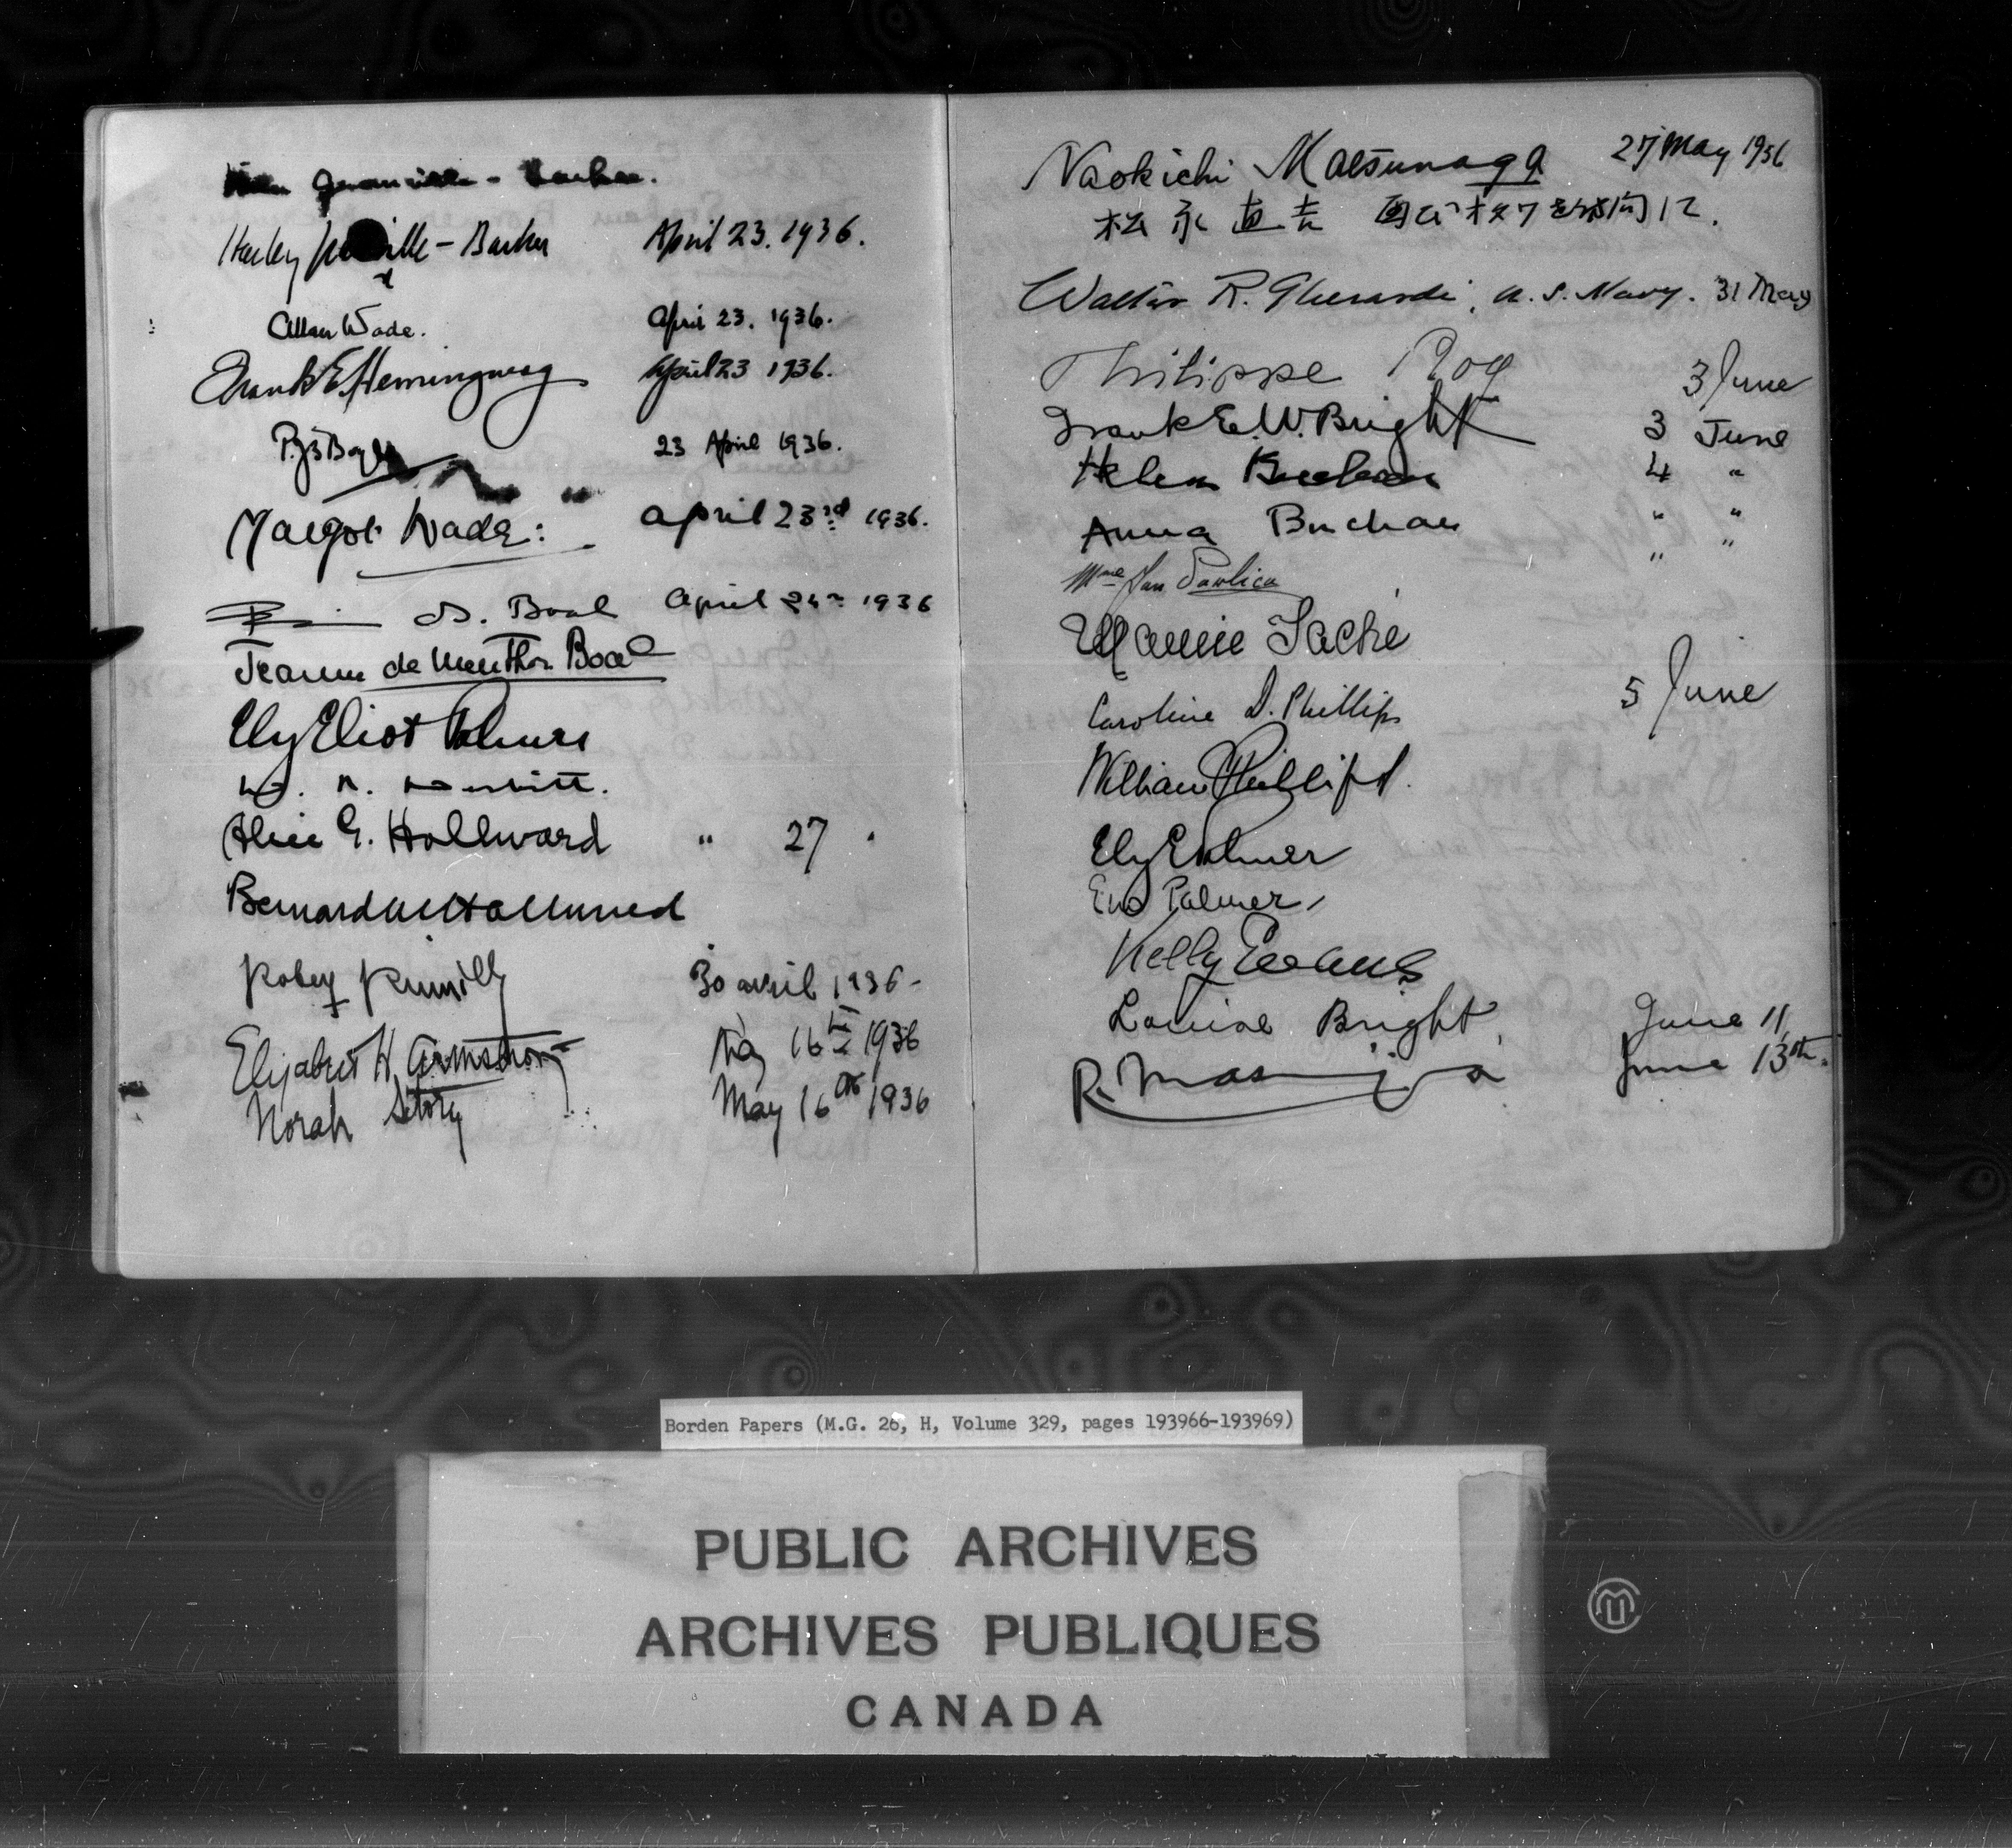 Granville - Barker.
Harley Granville - Barker April 23. 1936.
Allan Wade. April 23. 1936.
Frank E. Hemingway April 23 1936.
23 April 1936.
Margot Wade: April 23rd 1936.
Boal April 24th 1936
Jeanne de Menthon Boal
Ely Eliot Palmer
Alice G. Hallward " 27 "
Bernard M Hallward
Robert Rumilly 30 avril 1936 -
Elizabeth H. Armstrong May 16th 1936
Norah Story May 16th 1936
Naokichi Matsunaga 27 May 1936
松永直吉
Walter R. Gherardi, U. S. Navy. 31 May
Philippe Roy 3 June
Frank E. W. Bright 3 June
Helen Buchan 4 "
Anna Buchan " "
Mme Jan Pavlica " "
Mamie Taché
Caroline D. Phillips 5 June
William Phillips.
Ely Palmer
Eno Palmer,
Kelly Evans
Louise Bright, June 11,
R. June 13th.
Borden Papers (M.G. 26, H, Volume 329, pages 193966-193969)
PUBLIC ARCHIVES
ARCHIVES PUBLIQUES
CANADA